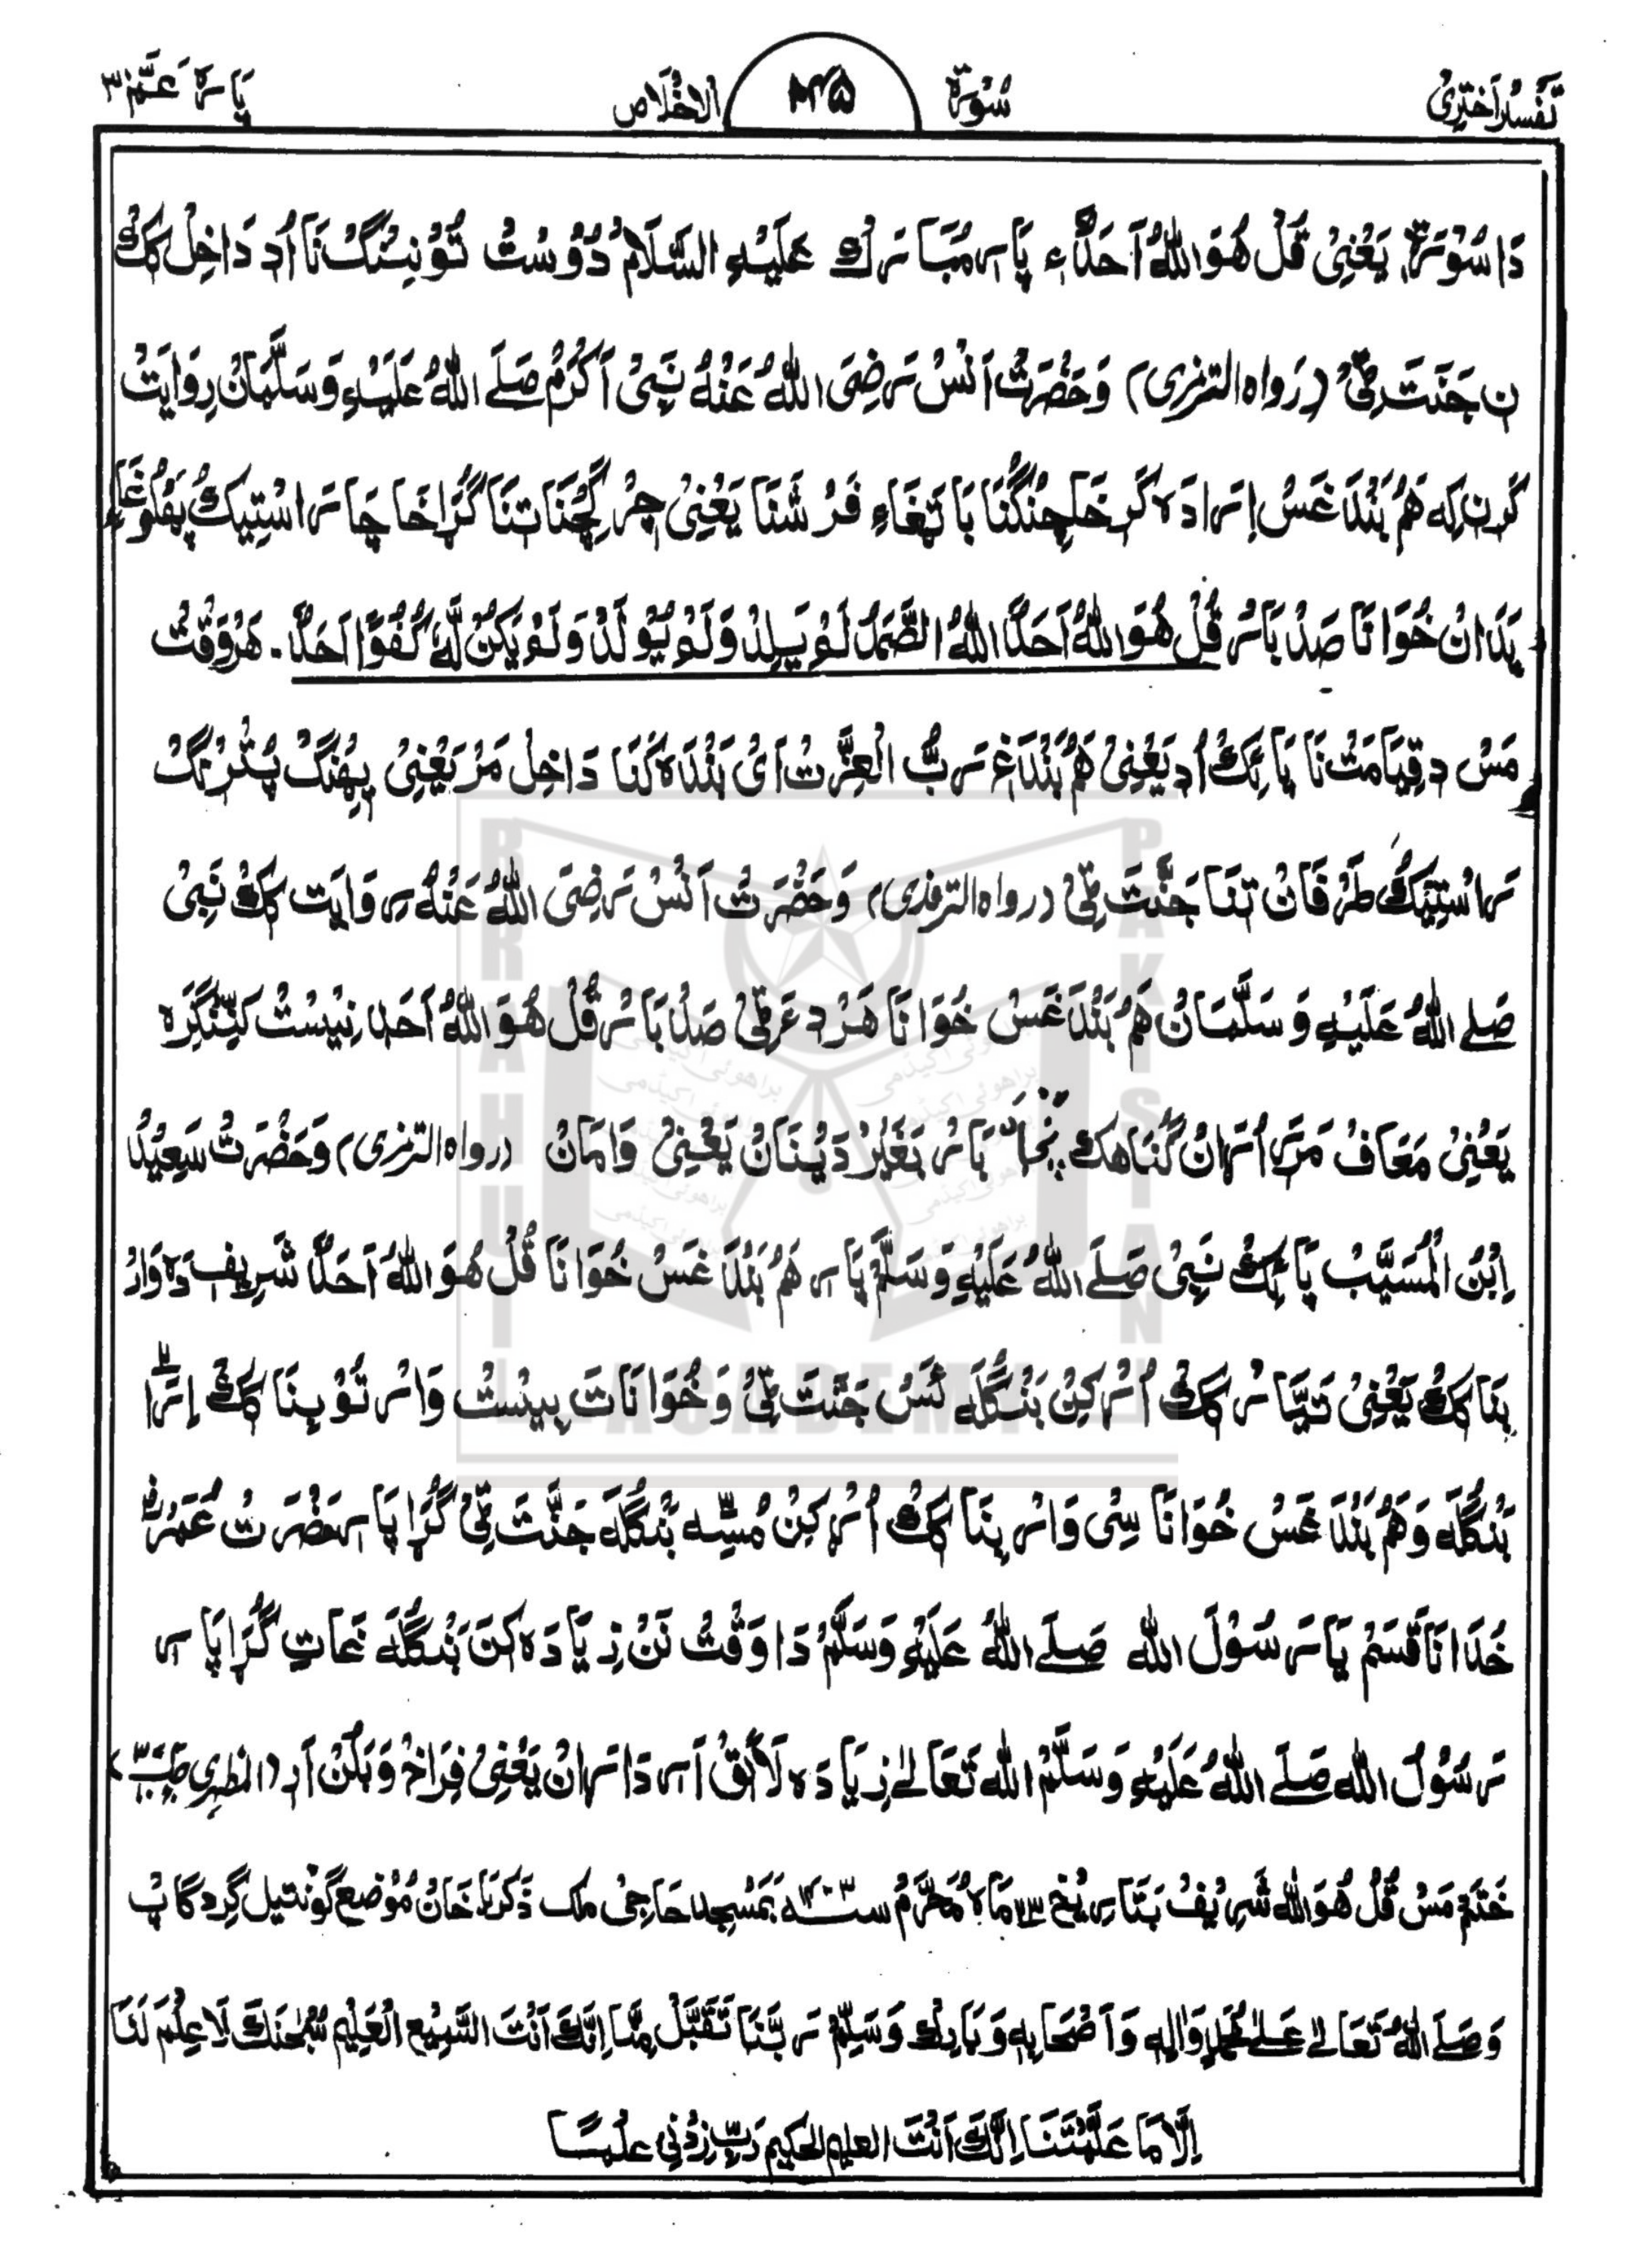 تَفسیرِ اَختَرِیْ سُوْرَة ٨٤۵ الاخْلَاص پَارَہ عَمَّ ۳۰
دَا سُوْرَةِ، یَعْنِیْ قُلْ هُوَ اللّٰهُ اَحَدٌء پَارِ مُبَارَكْ عَلَیْهِ السَّلَامْ دُوْسْتْ تَوْنِنْگْ نَا اُدِ دَاخِلْ كِكْ
نِ جَنَّتَ ٹِیْ (رَواہ الترمزی) وَحَضْرَتْ اَنَسْ رَضِیَ اللّٰهُ عَنْهُ نَبِیْ اَكْرَمْ صَلَے اللّٰهُ عَلَیْهِ وَسَلَّمَانْ رِوَایَتْ
كَرِنِ كِه هَمُ بَنْدَغَسْ اِرَادَہ كَرِ خَاچِنْگْنَا بَا تِغَاءِ فَرْشَنَا یَعْنِیْ چِرْ گِچْنَا تِنَا گُڑَا خَاچَا رَاسْتِیكُ پَهْلُوغَاءِ
پَدَانْ خُوَانَا صَدْ بَارْ قُلْ هُوَ اللّٰهُ اَحَدٌ اللّٰهُ الصَّمَدُ لَمْ یَلِدْ وَلَمْ یُوْلَدْ وَلَمْ یَكُنْ لَّهٗ كُفُوًا اَحَدٌ. هَرْ وَقْتْ
مَسْ دِ قِیَامَتْ نَا پَائِكْ اُدِ یَعْنِیْ هَمُ بَنْدَغِ رَبُّ الْعِزَّتْ اَیْ بَنْدَہ كَنَا دَاخِلْ مَرْ یَعْنِیْ پِهْنَگْ پُتْرِنْگْ
رَاسْتِیكُ طَرْفَانْ تِنَا جَنَّتَ ٹِیْ (رواہ الترمذی) وَحَضْرَتْ اَنَسْ رَضِیَ اللّٰهُ عَنْهُ رِوَایَت كِكْ نَبِیْ
صَلے اللّٰهُ عَلَیْهِ وَسَلَّمَانْ هَمُ بَنْدَغَسْ خُوَانَا هَرْ دِعَہ ٹِیْ صَدْ بَارْ قُلْ هُوَ اللّٰهُ اَحَد نِیْسْتْ كِنِنْگِرَہ
یَعْنِیْ مَعَافْ مَرِرَ اُرَانْ گُنَاهكْ پَنْجَاہ بَارْ بَغَیْرْ دَیْنَانْ یَعْنِیْ وَامَانْ (رواہ الترمزی) وَحَضْرَتْ سَعِیْدْ
اِبْنِ الْمُسَیَّبْ پَائِكْ نَبِیْ صَلَے اللّٰهُ عَلَیْهِ وَسَلَّمْ پَارِ هَمُ بَنْدَغَسْ خُوَانَا قُلْ هُوَ اللّٰهُ اَحَدٌ شَرِیفِ دَہ وَارْ
بِنَا كِكْ یَعْنِیْ تَیَّارْ كِكْ اُرْكِنْ بَنْگَلَه ئَسْ جَنَّتَ ٹِیْ وَخُوَانَاتَ بِیسْتْ وَارْ تَوْ بِنَا كِكْ اِرَا
بَنْگَلَه وَهَمُ بَنْدَغَسْ خُوَانَا سِیْ وَارْ بِنَا كِكْ اُرْكِنْ مُسِّه بَنْگَلَه جَنَّتَ ٹِیْ گُڑَا پَارِ حَضْرَتْ عُمَرْؓ
خُدَا نَا قَسَمْ یَا رَسُوْلَ اللّٰه صَلَے اللّٰهُ عَلَیْهِ وَسَلَّمْ دَا وَقْتْ نَنْ زِیَادَہ كِنَ بَنْگَلَه غَاتِ گُڑَا پَارِ
رَسُوْلَ اللّٰه صَلَے اللّٰهُ عَلَیْهِ وَسَلَّمْ اللّٰه تَعَالےٰ زِیَادَہ لَائِقْ اَرِ دَارَانْ یَعْنِیْ فِرَاخْ وَبَلُنْ اَرِ (المظہری
خَتَمْ مَسْ قُلْ هُوَ اللّٰه شَرِیْفْ بَتَارِیْخِ ۱۳ مَاہِ مُحَرَّمْ سنه ۱٤۰۳ه بَمَسْجِد حَاجِیْ مَلِك ذَكَرِیَاخَانْ مُوْضِع گَونتیل گِردگاپْ
وَصَلَے اللّٰهُ تَعَالےٰ عَلےٰ مُحَمَّدٍ وَّاٰلِهِ وَاَصْحَابِهِ وَبَارِكْ وَسَلِّمْ رَبَّنَا تَقَبَّلْ مِنَّا اِنَّكَ اَنْتَ السَّمِیْع الْعَلِیْم سُبْحٰنَكَ لَا عِلْمَ لَنَا
اِلَّا مَا عَلَّمْتَنَا اِنَّكَ اَنْتَ العلیم الحكیم رَبِّ زِدْنِی عِلْمًا
BRAHUI ACADEMY PAKISTAN